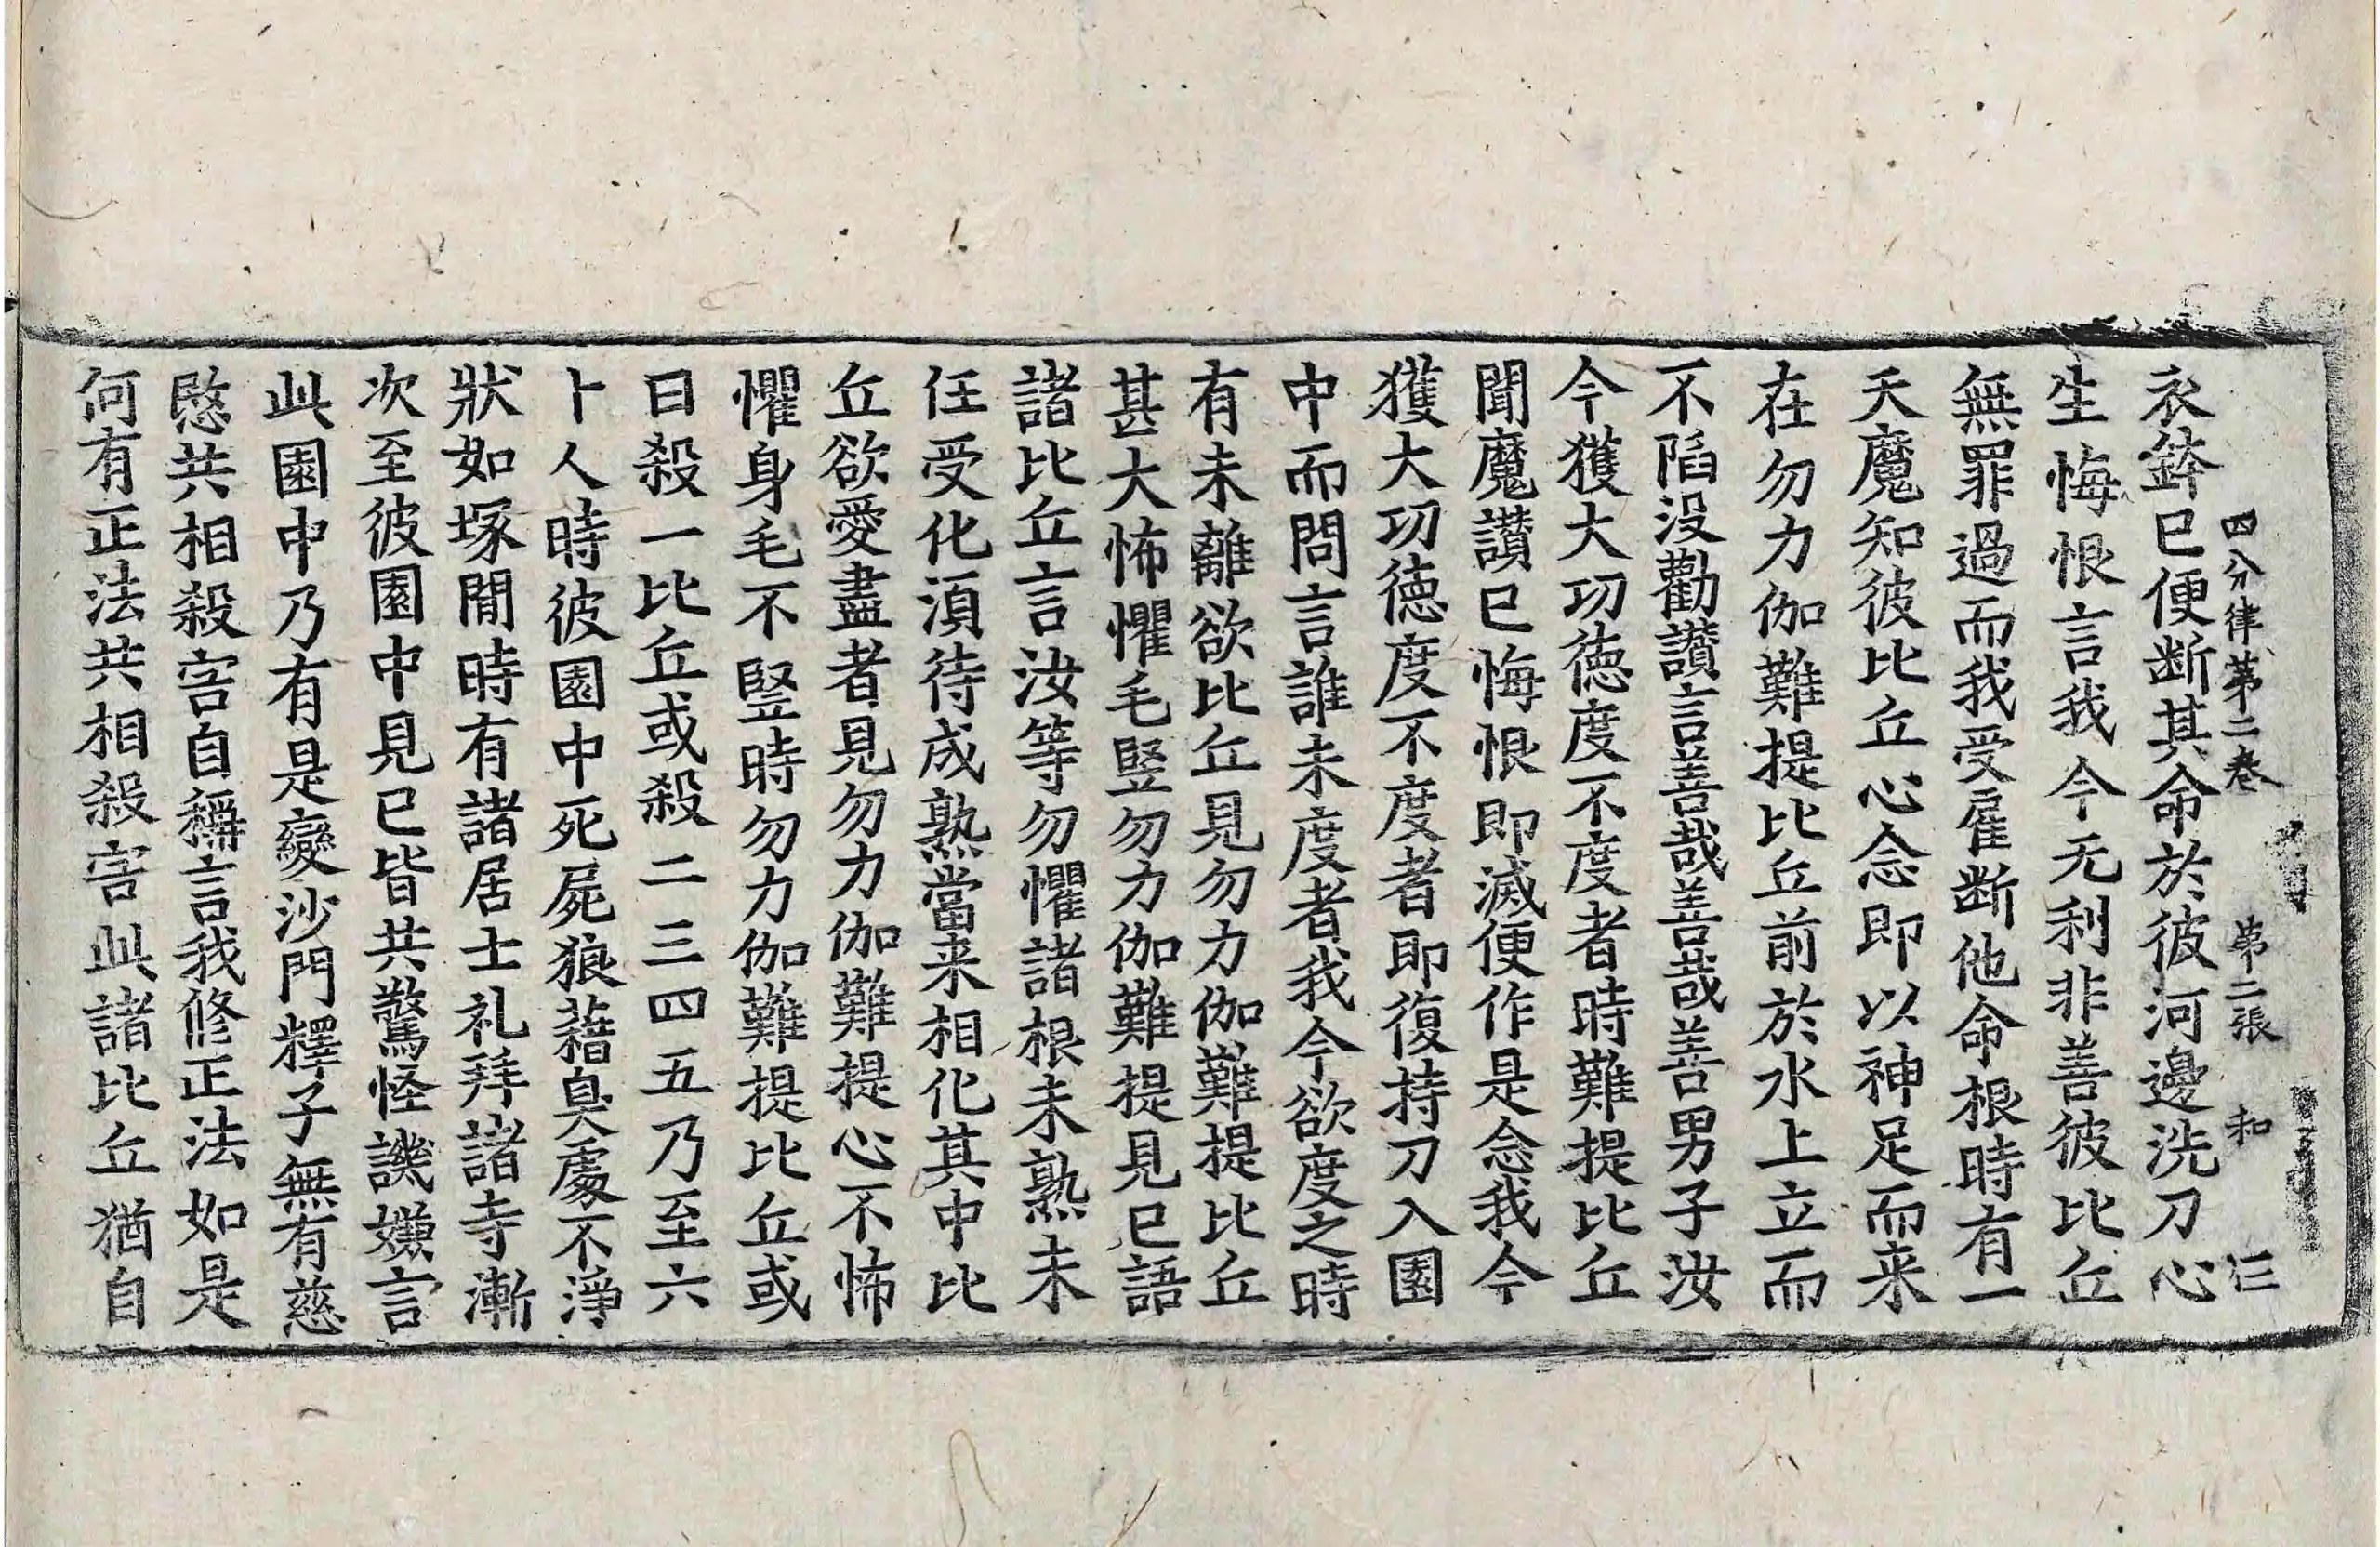 四分律第二卷 第二張 和 仨
衣鉢已便断其命於彼河邊洗刀心
生悔恨言我今无利非善彼比丘
無罪過而我受雇断他命根時有一
天魔知彼比丘心念即以神足而来
在勿力伽難提比丘前於水上立而
不陷没勸讃言善哉善哉善男子汝
今獲大功徳度不度者時難提比丘
聞魔讃已悔恨即滅便作是念我今
獲大功徳度不度者即復持刀入園
中而問言誰未度者我今欲度之時
有未離欲比丘見勿力伽難提比丘
甚大怖懼毛竪勿力伽難提見已語
諸比丘言汝等勿懼諸根未熟未
任受化湏待成熟當来相化其中比
丘欲愛盡者見勿力伽難提心不怖
懼身毛不竪時勿力伽難提比丘或
日殺一比丘或殺二三四五乃至六
十人時彼園中死屍狼藉臭處不淨
狀如塚間時有諸居士礼拜諸寺漸
次至彼園中見已皆共驚怪譏嫌言
此園中乃有是變沙門釋子無有慈
愍共相殺害自稱言我修正法如是
何有正法共相殺害此諸比丘猶自